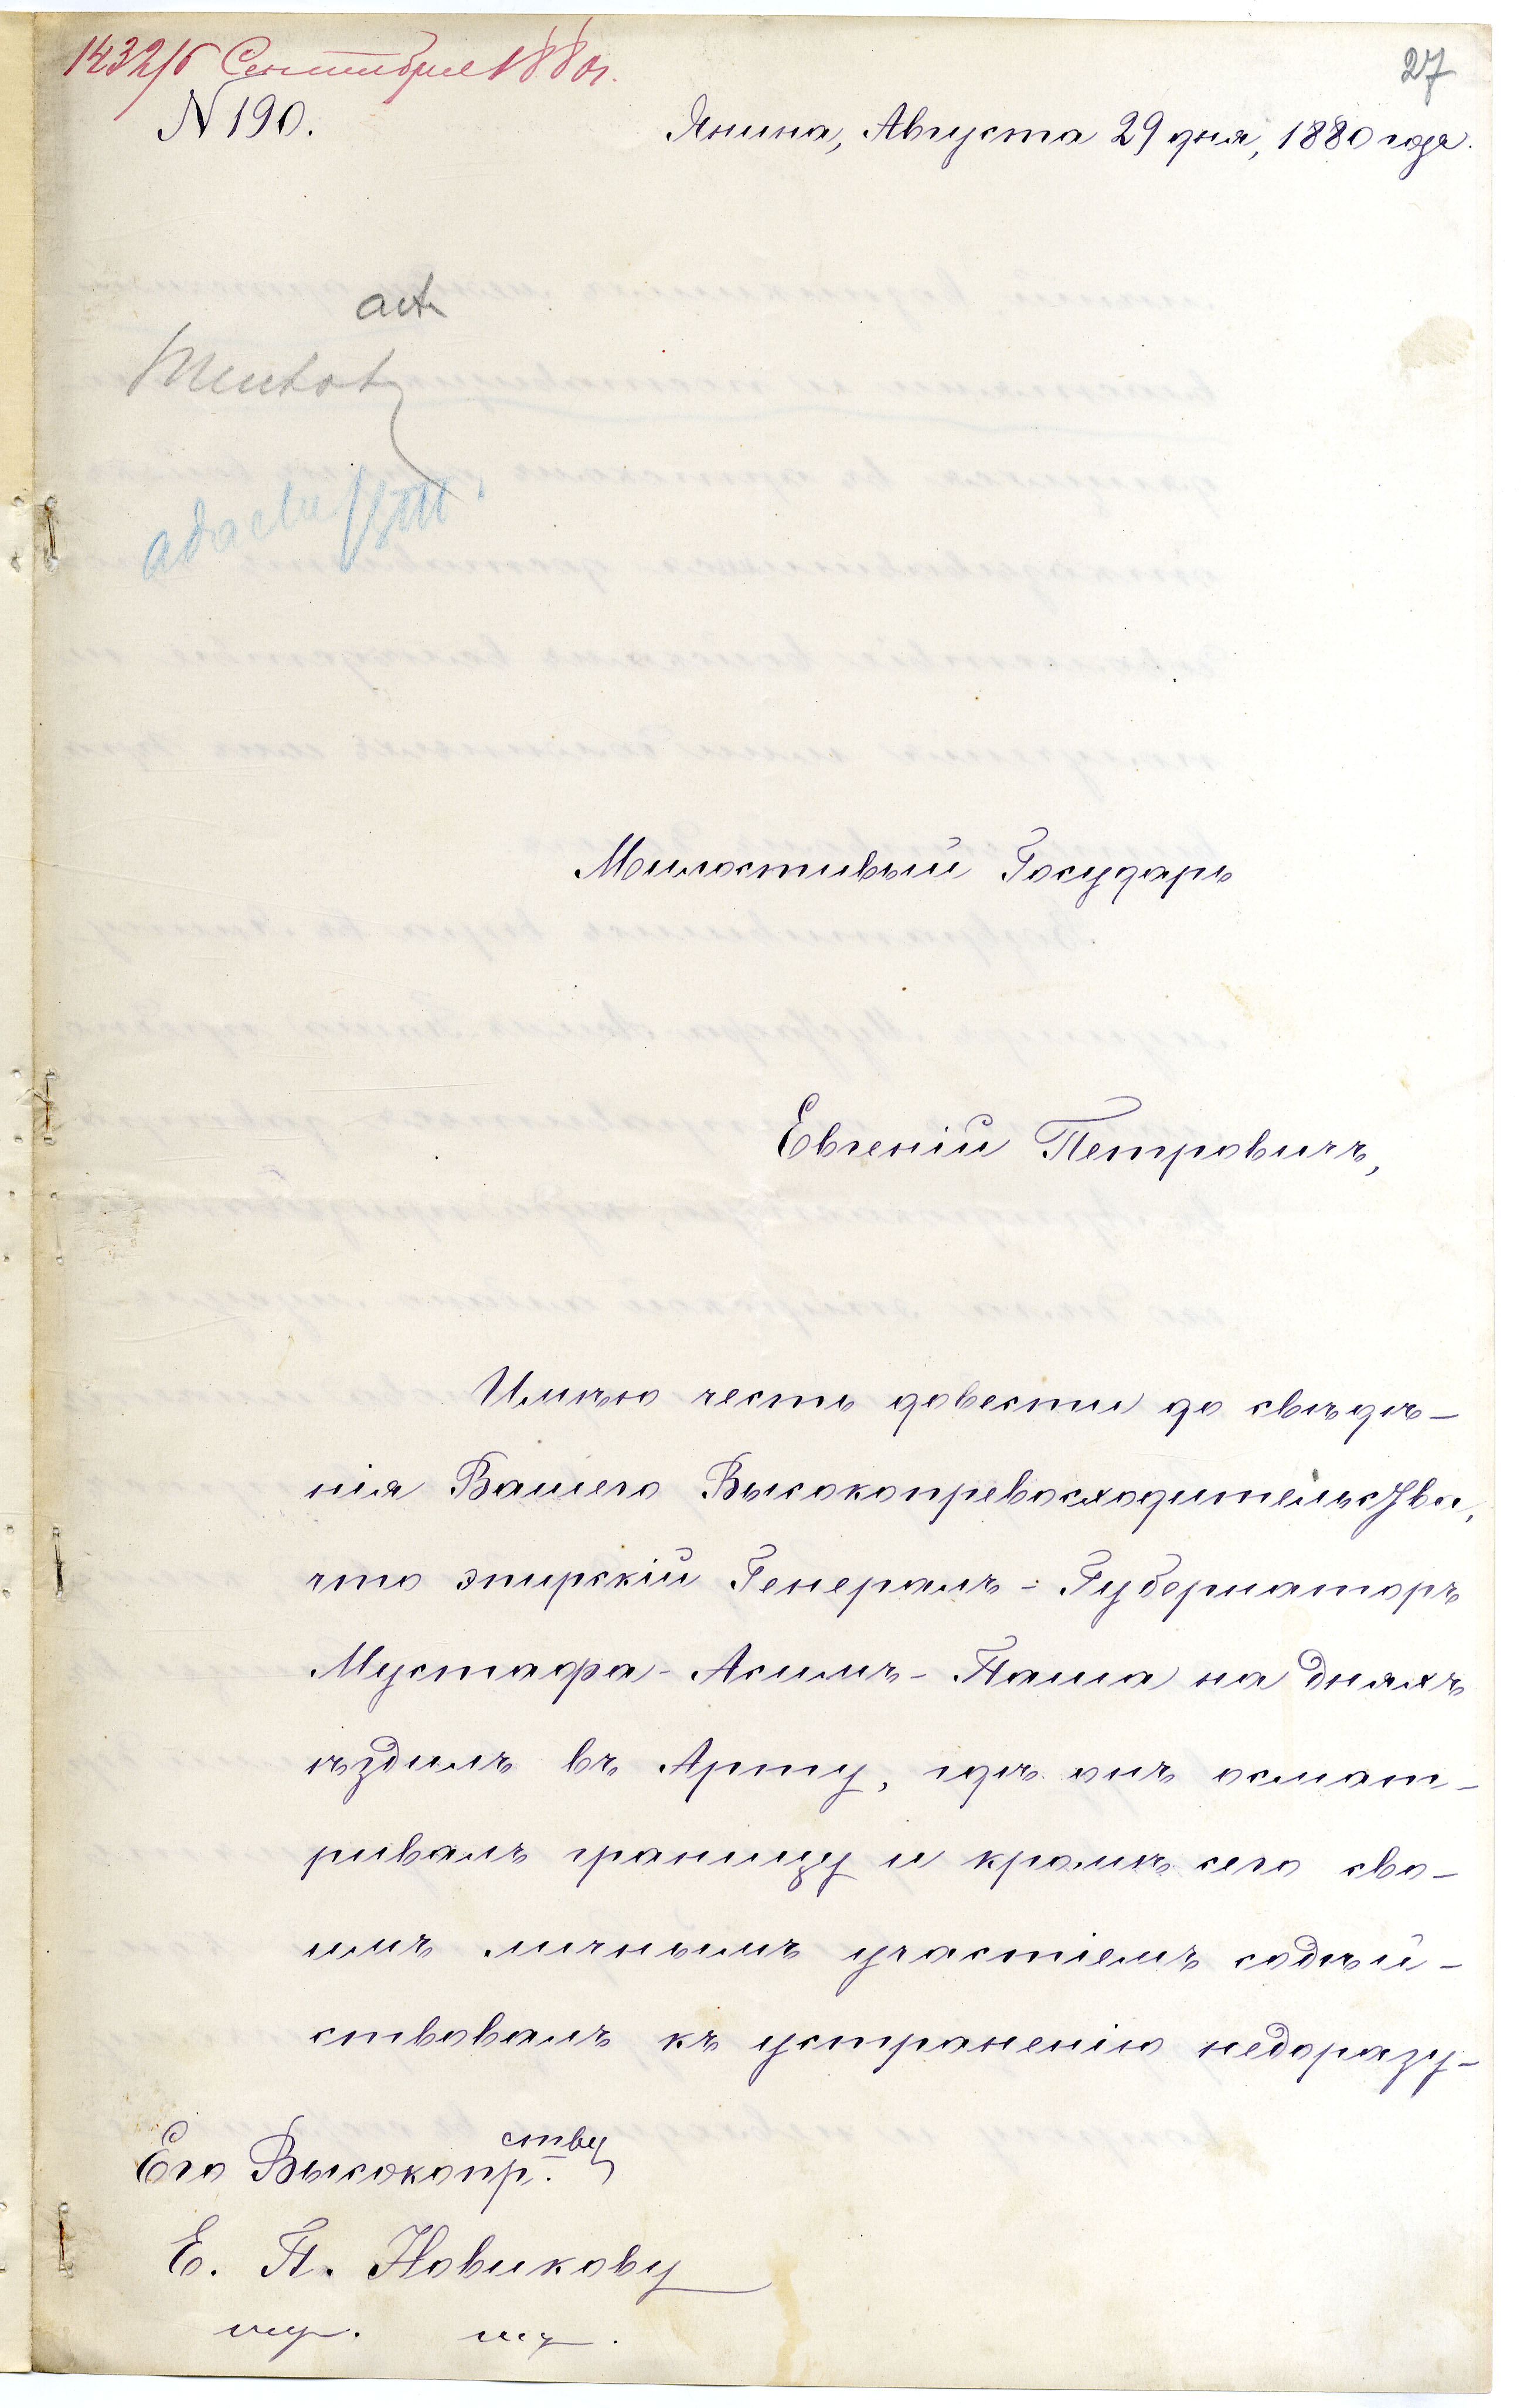 1432/6 Сентября 1880 г.
27
N 190.
Янина, Августа 29 дня, 1880 года.
act
ad acta
Милостивый Государь
Евгеній Петровичъ,
Имѣю честь довести до свѣдѣ-
нія Вашего Высокопревосходительства,
что эпирскій Генералъ-Губернаторъ
Мустафа-Асимъ-Паша на дняхъ
ѣздилъ въ Арту, гдѣ онъ осмат-
ривалъ границу и кромѣ сего сво-
имъ личнымъ участіемъ содѣй-
ствовалъ къ устраненію недоразу-
Его Высокопр.ству
Е. П. Новикову